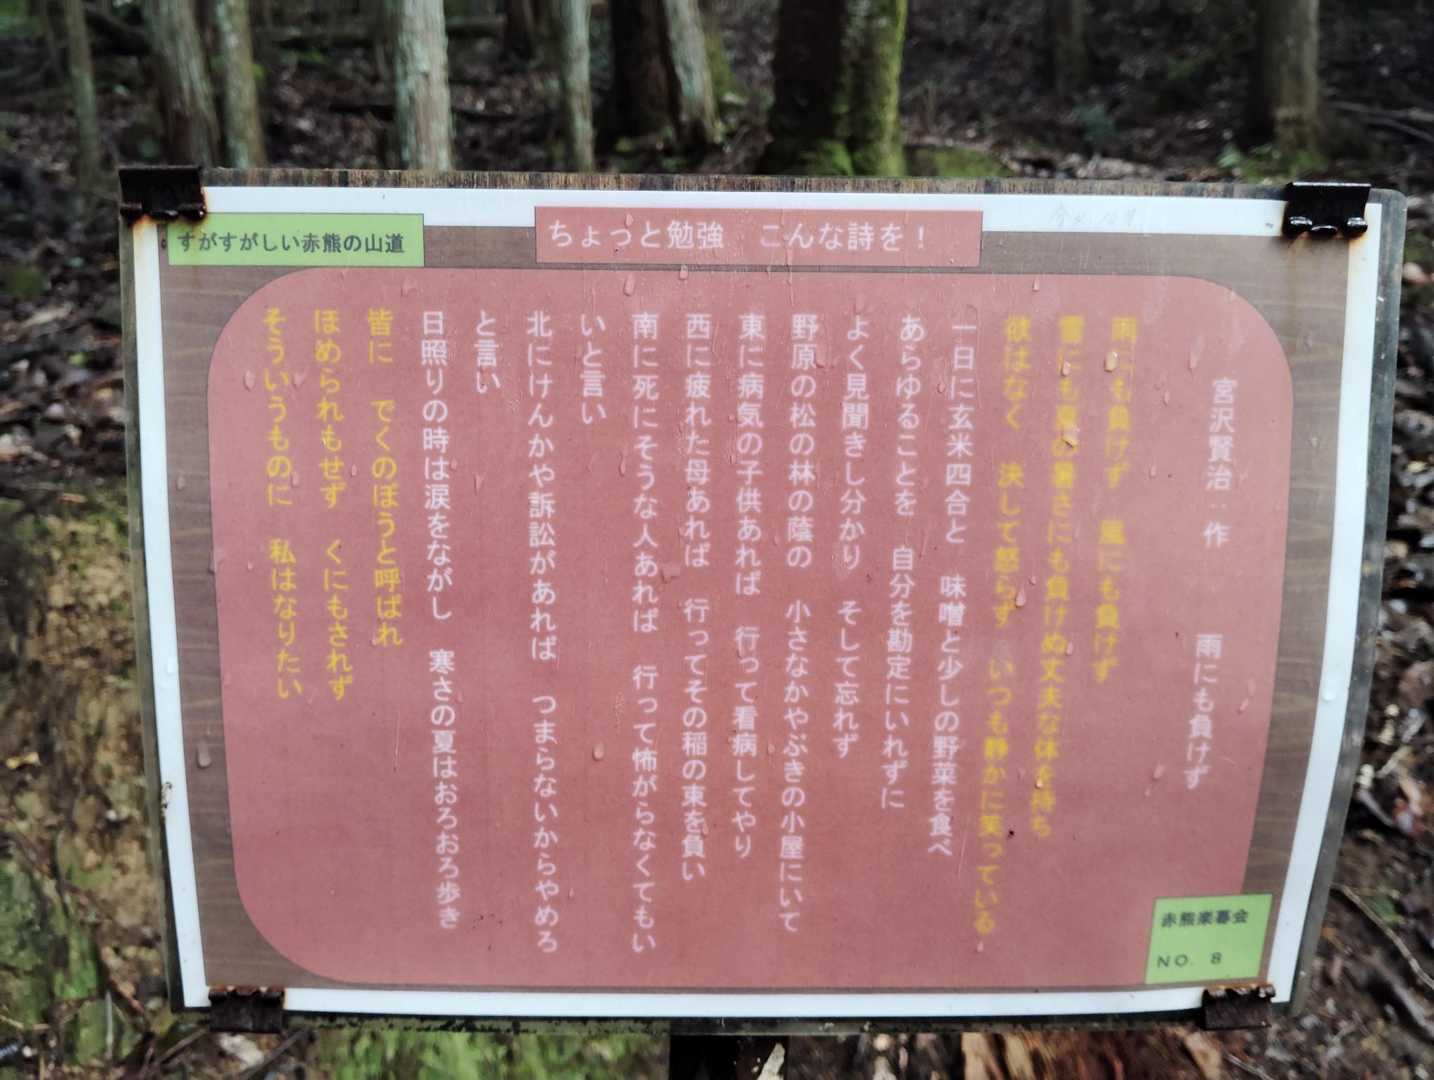 すがすがしい赤熊の山道
ちょっと勉強　こんな詩を！
宮沢賢治：作　雨にも負けず
雨にも負けず　風にも負けず
雪にも夏の暑さにも負けぬ丈夫な体を持ち
欲はなく　決して怒らず　いつも静かに笑っている
一日に玄米四合と　味噌と少しの野菜を食べ
あらゆることを　自分を勘定にいれずに
よく見聞きし分かり　そして忘れず
野原の松の林の蔭の　小さなかやぶきの小屋にいて
東に病気の子供あれば　行って看病してやり
西に疲れた母あれば　行ってその稲の束を負い
南に死にそうな人あれば　行って怖がらなくてもい
いと言い
北にけんかや訴訟があれば　つまらないからやめろ
と言い
日照りの時は涙をながし　寒さの夏はおろおろ歩き
皆に　でくのぼうと呼ばれ
ほめられもせず　くにもされず
そういうものに　私はなりたい
赤熊楽暮会
NO. 8